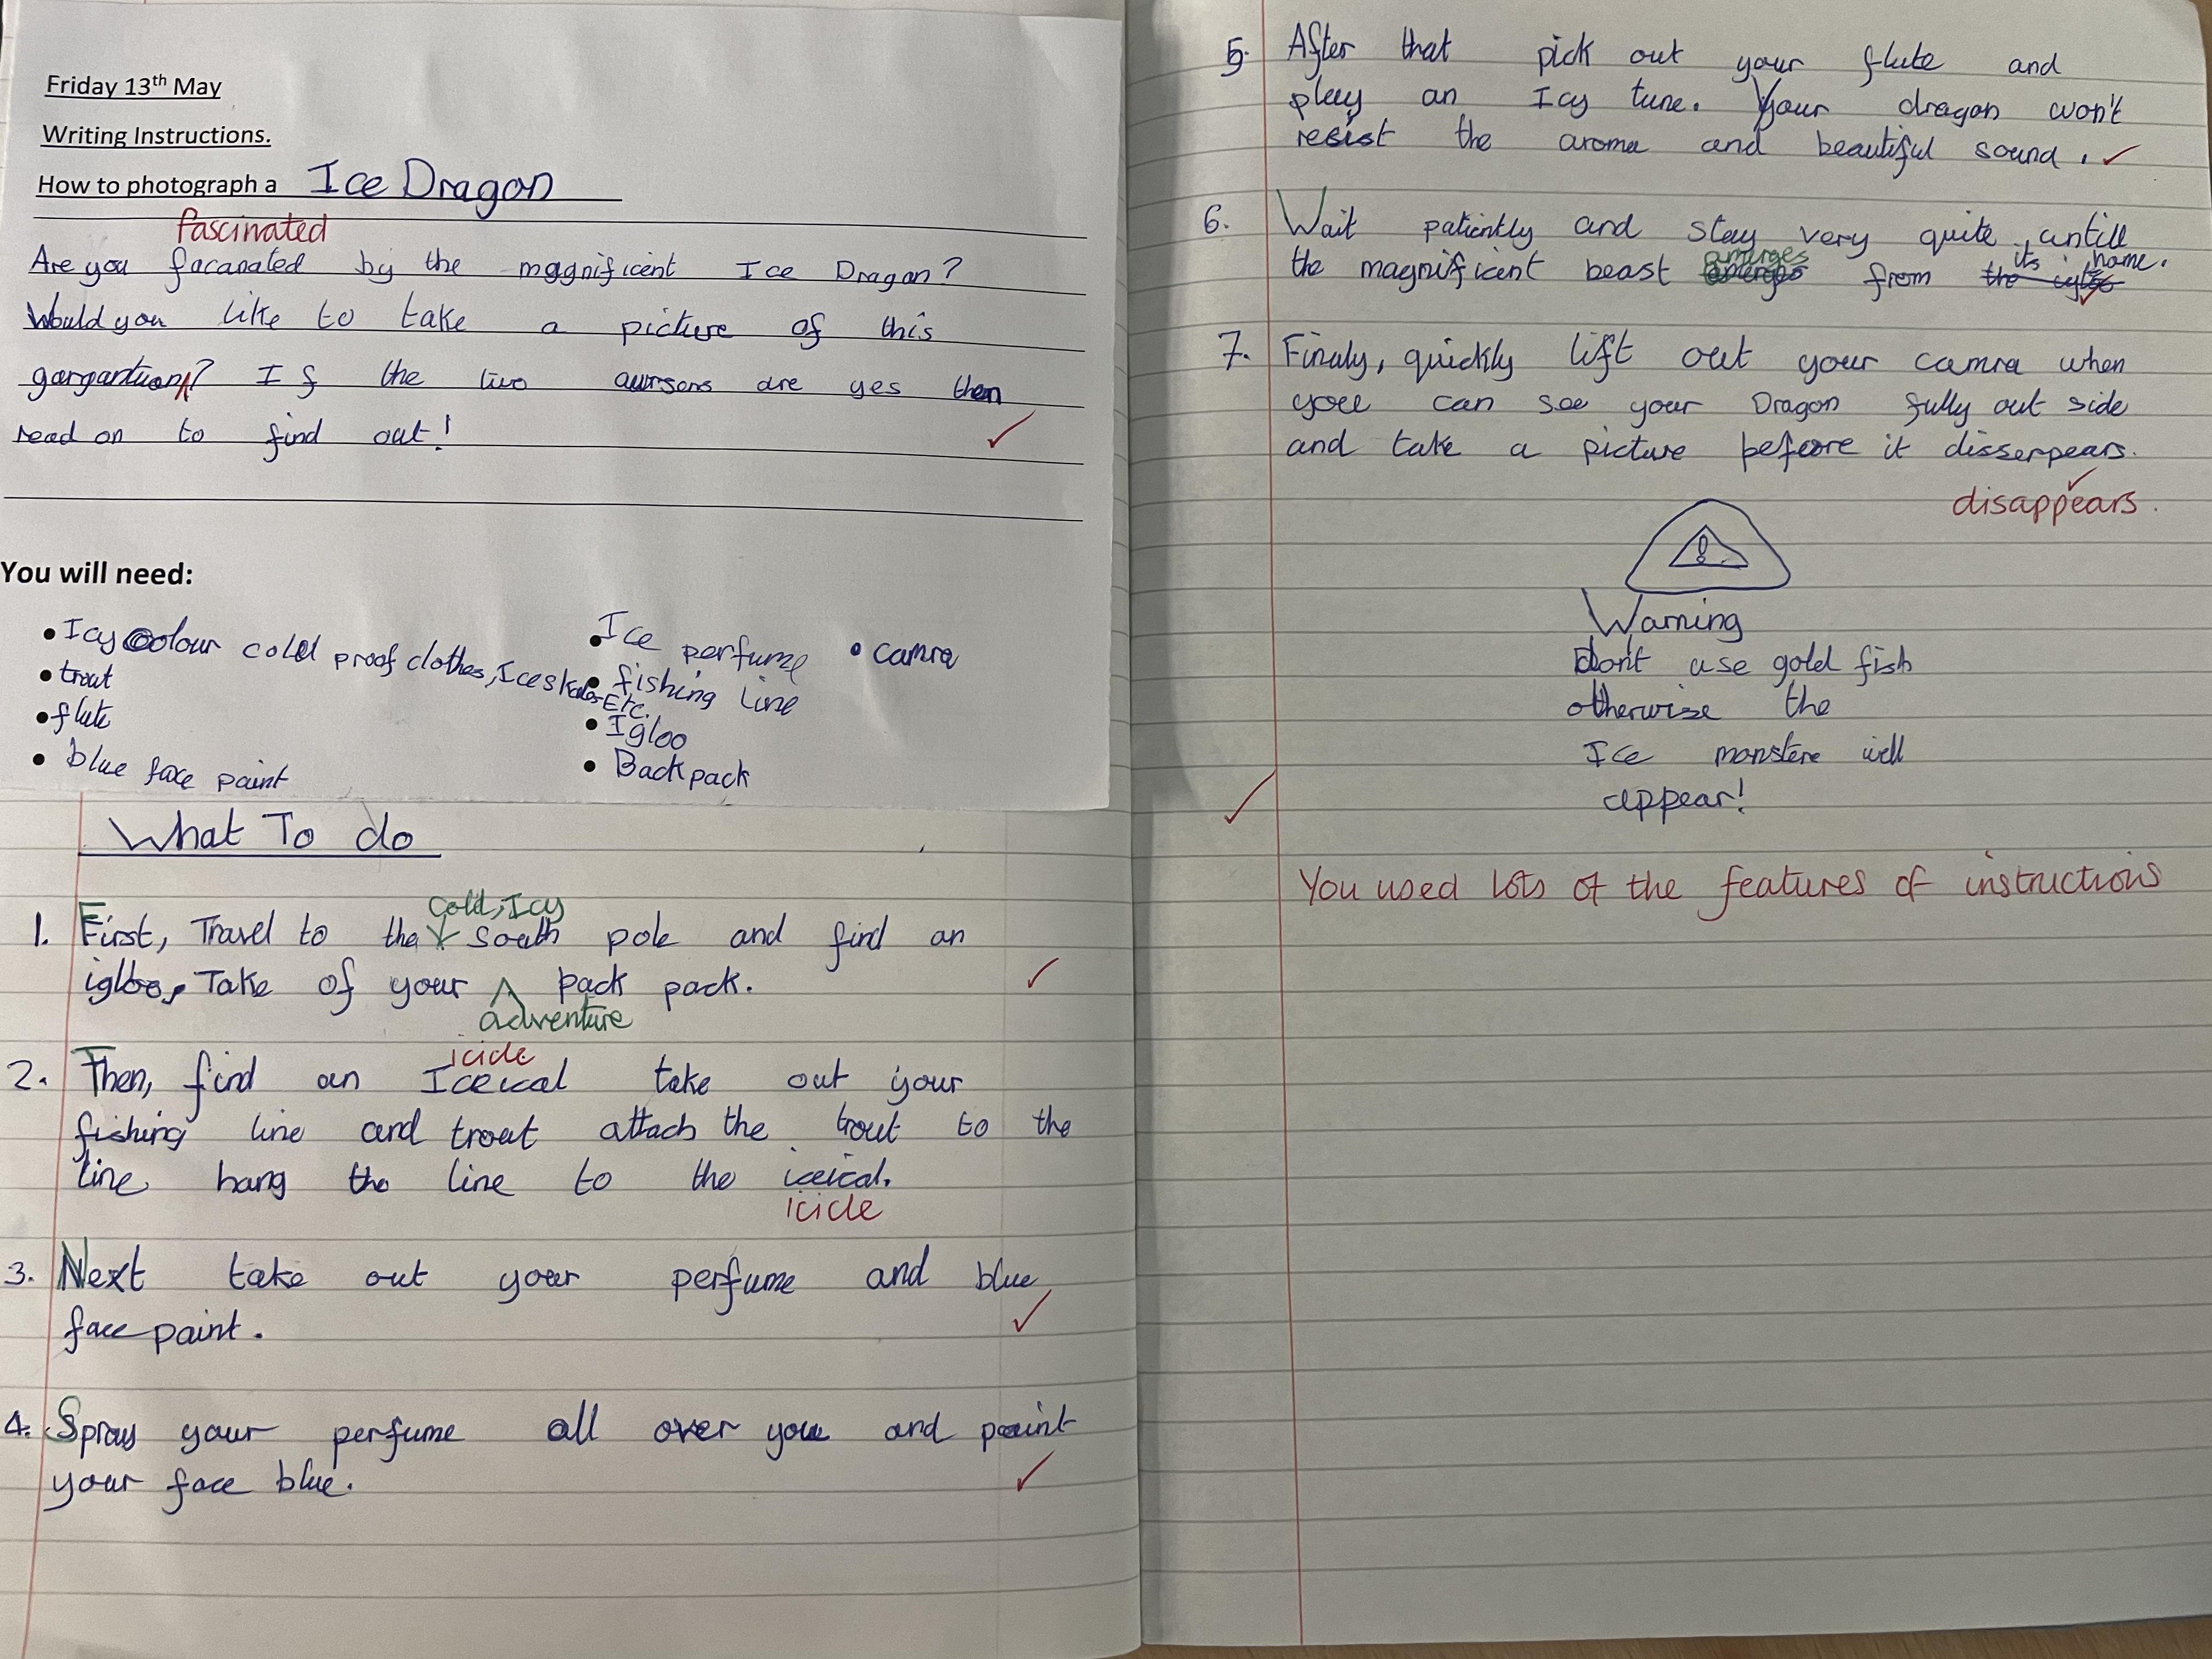 Friday 13th May
Writing Instructions.
How to photograph a Ice Dragon
fascinated
Are you facanated by the magnificent Ice Dragon?
Would you like to take a picture of this
gargantuan? If the two aursons are yes then
read on to find out!
You will need:
• Icy colour cold proof clothes, Ice skates Etc.
• trout
• flute
• blue face paint
• Ice perfume
• fishing line
• Igloo
• Back pack
• camra
What To do
cold, Icy
1. First, Travel to the south pole and find an
igloo, Take of your pack pack.
adventure
icicle
2. Then, find an Iceical take out your
fishing line and trout attach the trout to the
line hang the line to the iceical.
icicle
3. Next take out your perfume and blue
face paint.
4. Spray your perfume all over you and paint
your face blue.
5. After that pick out your flute and
play an Icy tune. Your dragon won't
resist the aroma and beautiful sound.
6. Wait patiently and stay very quite, untill
amerges its home.
the magnificent beast amerges from the igloo
7. Finaly, quickly lift out your camra when
you can see your Dragon fully out side
and take a picture before it disserpears.
disappears.
!
Warning
Don't use gold fish
otherwise the
Ice monstere will
appear!
You used lots of the features of instructions